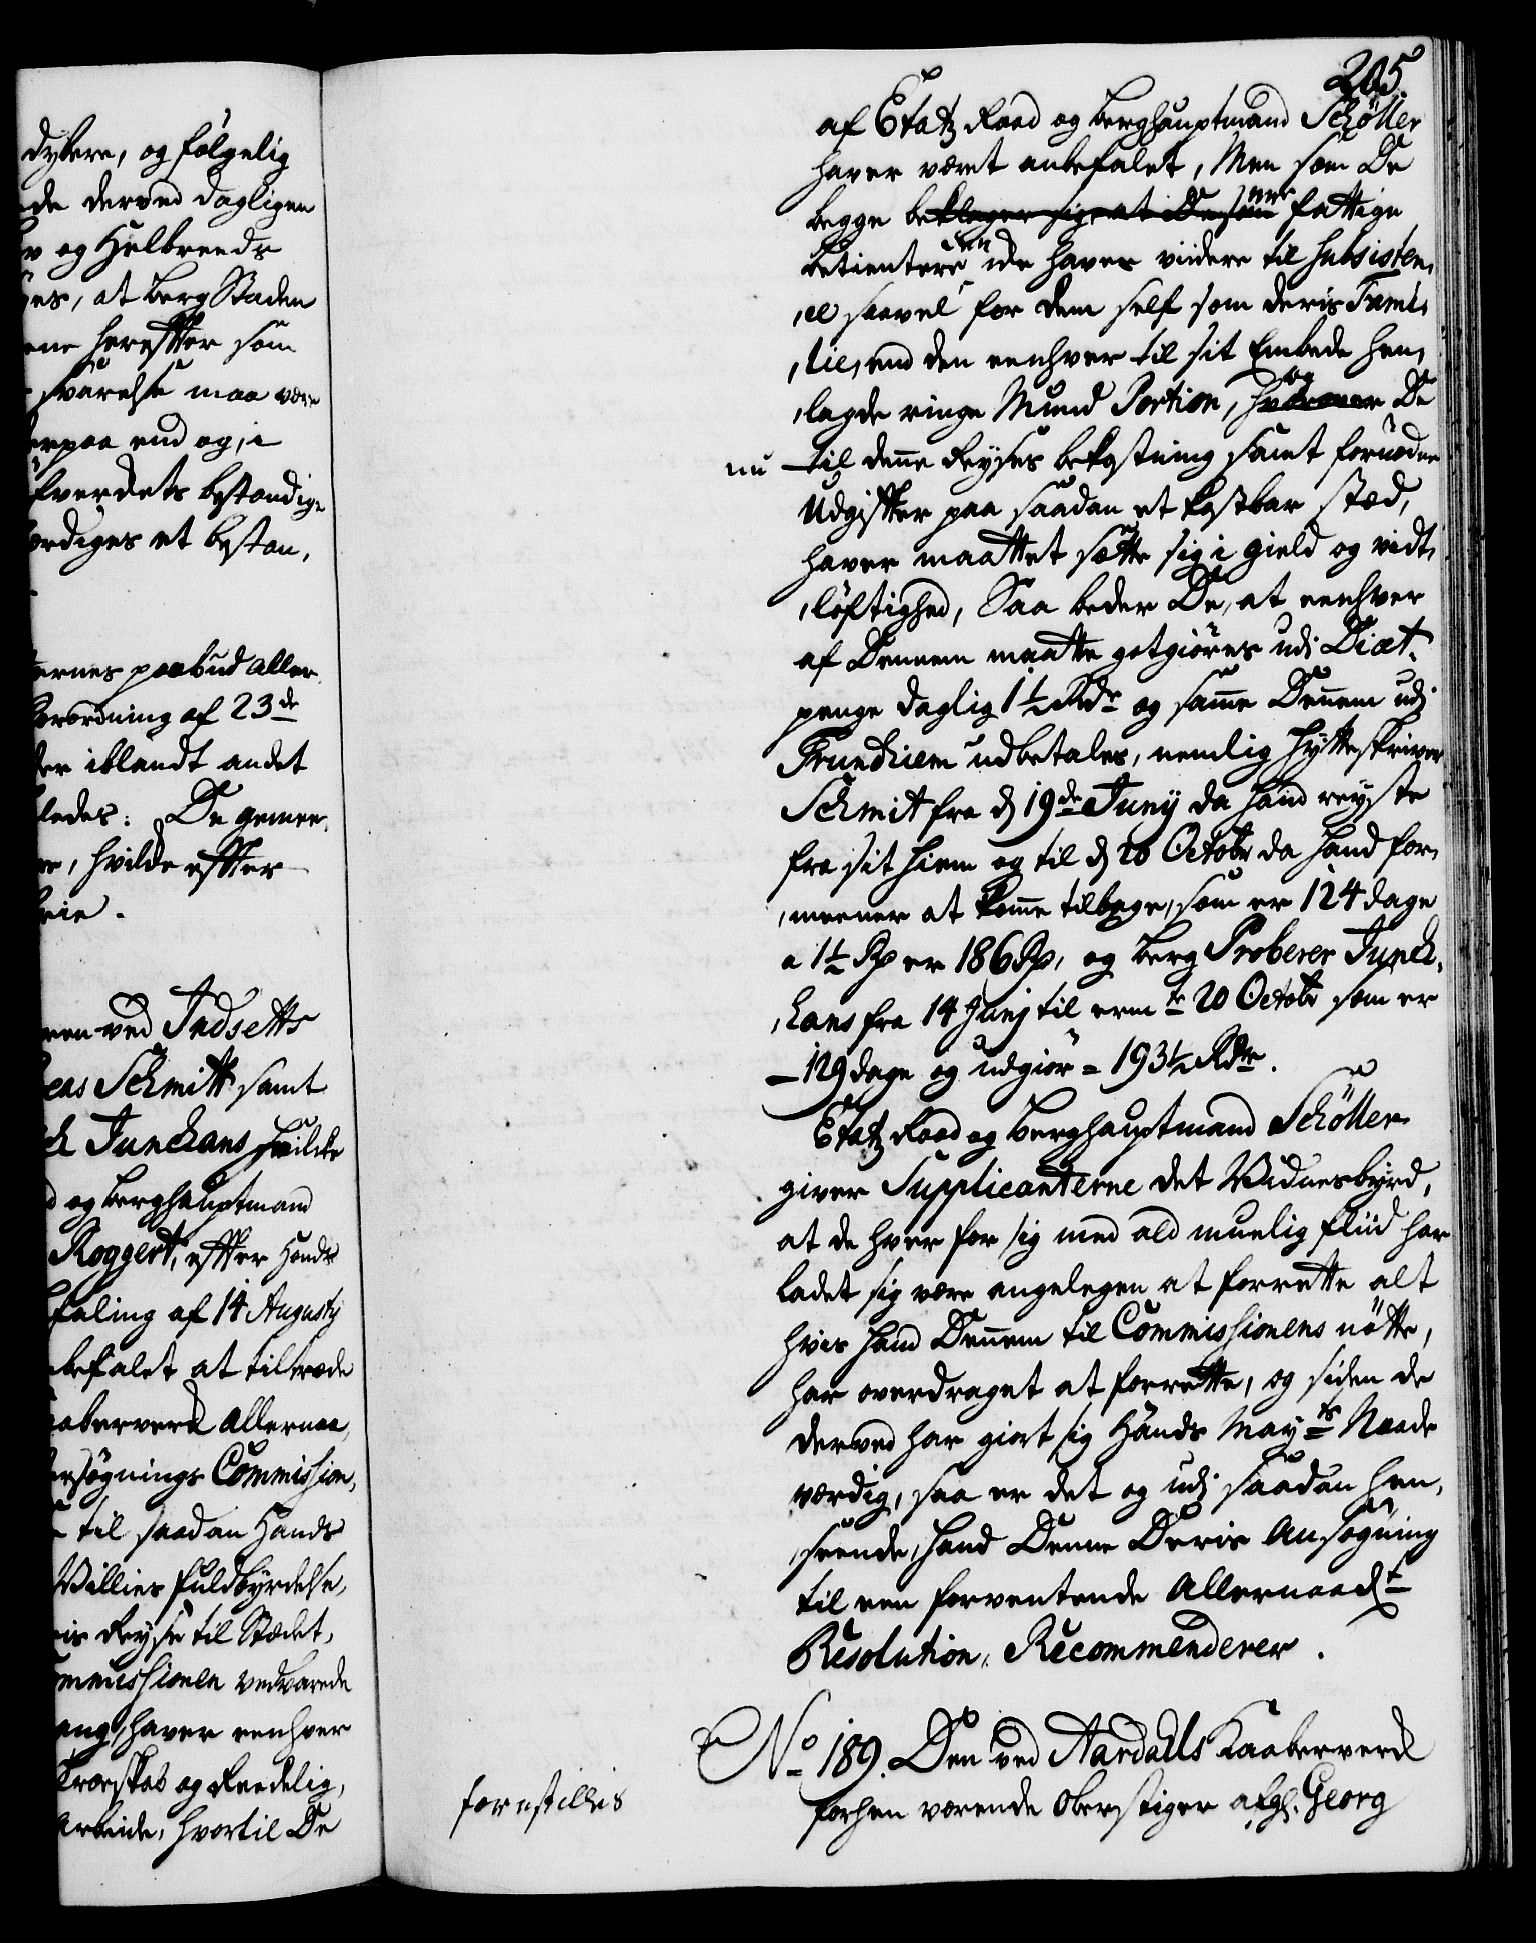 dybere, og følgelig
de derved dagligen
og Helbreeds
es, at Berg Staden
ene herefter som
svarelse maa være
erpaa end og, i
kverdets bestandige
ærdiges et bestan,
ernes paabud aller
orordning af 23de
der iblandt andet
ledes: De gemee,
re, hvilde efter
eie.
een ved Indsetts
eas Schmitt samt
ch Junchans hvilcke
d og Berghauptmand
Roggert, efter Hands
faling af 14 Augusty
befalet at tiltræde
aaberverck allernaa,
ersøgnings Commission,
til saadan Hands
Villies fuldbyrdelse,
is Reyse til Stædet,
ommissionen vedvarede
ang, haver eenhver
Troeskab og Reedelig,
Arbeide, hvortil De
205.
af Etatz Raad og Berghauptmand Schøller
haver været anbefalet, Men som De
begge beklager sig at De som ere fattige
betientere en ide haver viidere til Subsisten,
,ce saavel for dem self som deris Fami,
,lie, end den eenhver til sit Embede hen,
,lagde ringe Mund Portion, og De
nu til denne Reyses bekostning samt fornødne
Udgifter paa saadan et kostbar stæd,
haver maattet sætte sig i gield og vidt,
,løftighed, Saa beder De, at eenhver
af Dennem maatte gotgiøres udi Diæt,
penge daglig 1½ Rdr og samme Dennem udi
Trundhiem udbetales, nemlig Hytteskriver
Schmit fra d 19de Juny da hand reyste
fra sit hiem og til d 20 Octobr da hand for,
,meener at komme tilbage, som er 124 dage
a 1½ Rd er 186 Rd, og Berg Proberer Junch,
,hans fra 14 Junj til ermte 20 Octobr som er
129 dage og udgiør = 193½ Rdr.
Etatz Raad og Berghauptmand Schøller
giver Supplicanterne det Vidnesbyrd,
at de hver for sig med ald muelig fliid har
ladet sig være angelegen at forrette alt
hvis hand Dennem til Commissionens nøtte,
har overdraget at forrette, og siden de
derved har giort sig Hands Mayts Naade
værdig, saa er det og udi saadan hen,
,seende, hand Denne Deris Ansøgning
til een forventende Allernaadste
Resolution, Recommenderer.
No 189. Den ved Aardalls Kaaberverck
forestilles forhen værende Oberstiger afg. Georg